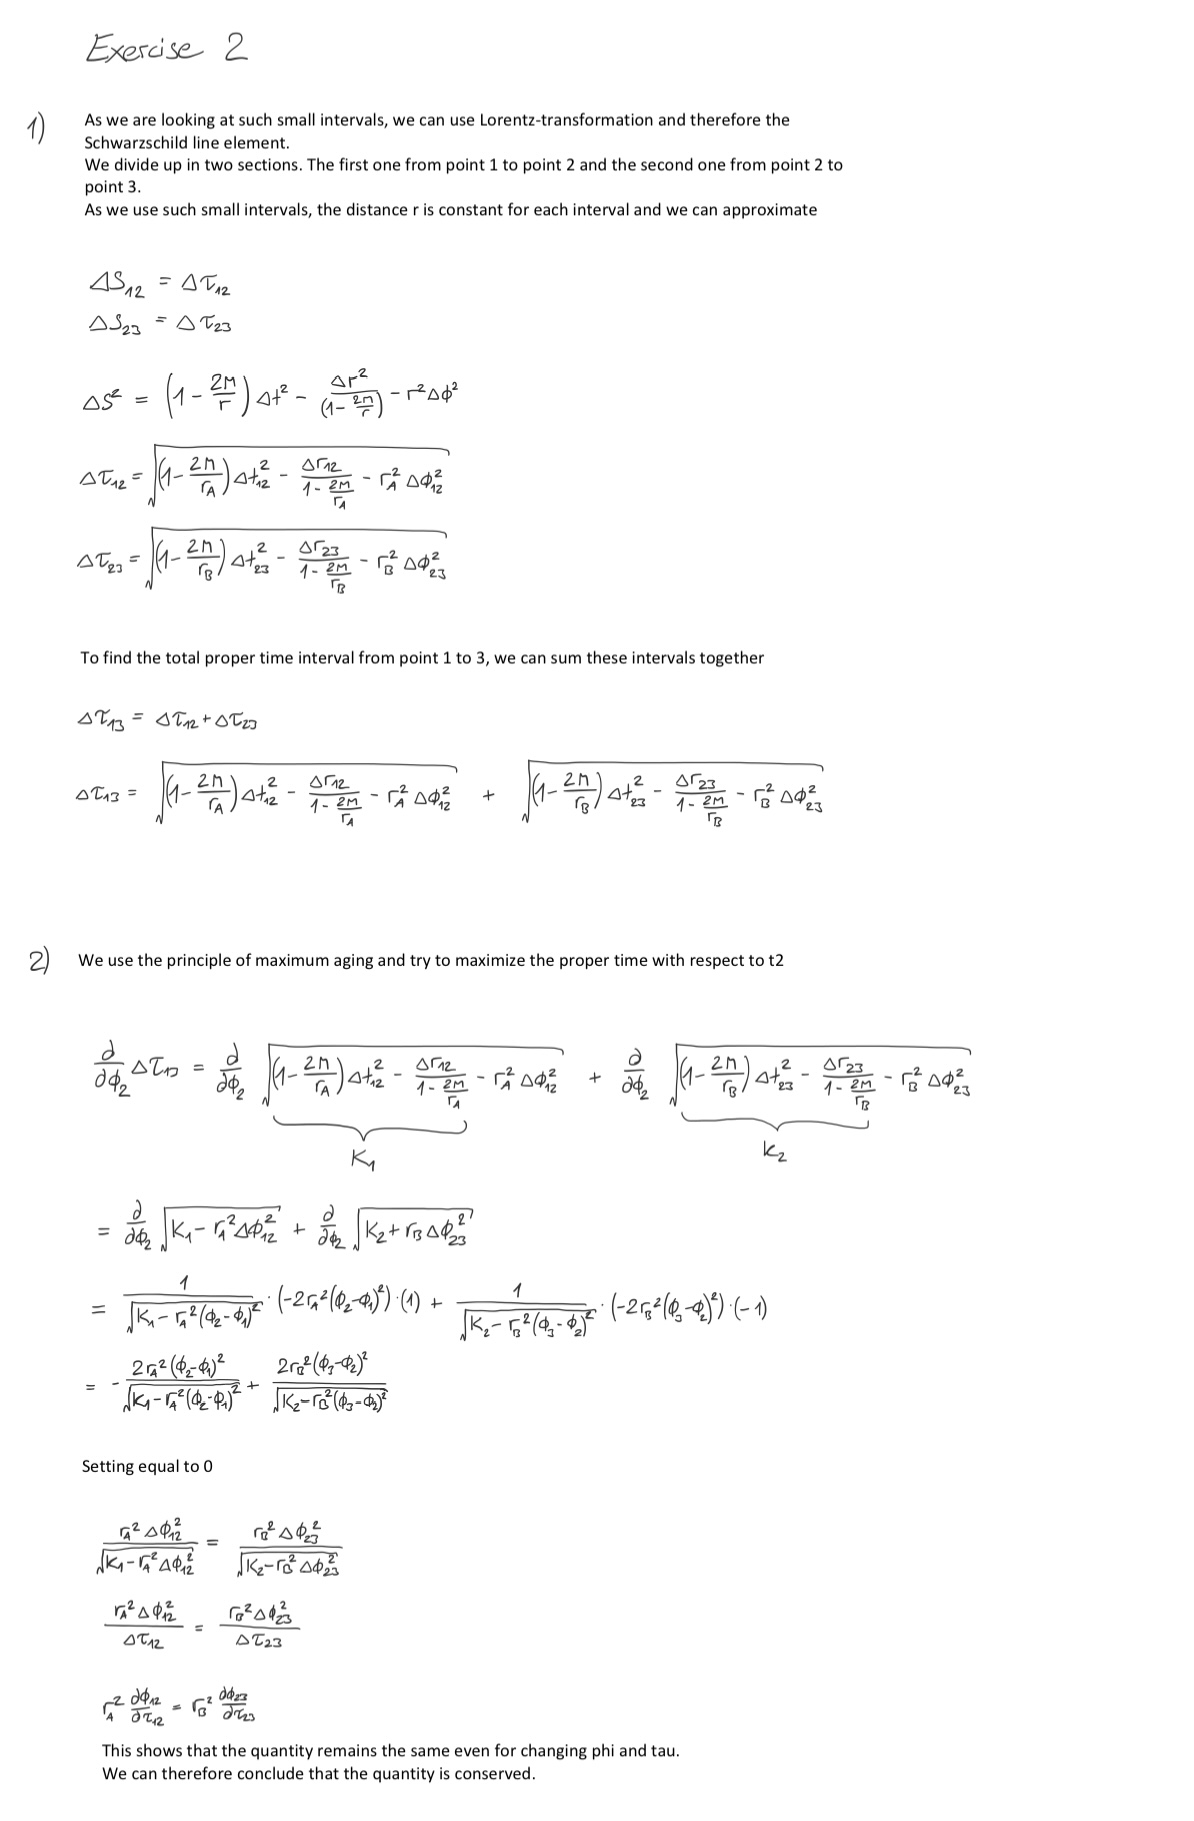 Exercise 2
1) As we are looking at such small intervals, we can use Lorentz-transformation and therefore the
Schwarzschild line element.
We divide up in two sections. The first one from point 1 to point 2 and the second one from point 2 to
point 3.
As we use such small intervals, the distance r is constant for each interval and we can approximate
ΔS₁₂ = Δτ₁₂
ΔS₂₃ = Δτ₂₃
ΔS² = (1 - 2M/r) Δt² - Δr²/(1 - 2M/r) - r²Δϕ²
Δτ₁₂ = √((1 - 2M/r_A) Δt₁₂² - Δr₁₂/(1 - 2M/r_A) - r_A² Δϕ₁₂²)
Δτ₂₃ = √((1 - 2M/r_B) Δt₂₃² - Δr₂₃/(1 - 2M/r_B) - r_B² Δϕ₂₃²)
To find the total proper time interval from point 1 to 3, we can sum these intervals together
Δτ₁₃ = Δτ₁₂ + Δτ₂₃
Δτ₁₃ = √((1 - 2M/r_A) Δt₁₂² - Δr₁₂/(1 - 2M/r_A) - r_A² Δϕ₁₂²) + √((1 - 2M/r_B) Δt₂₃² - Δr₂₃/(1 - 2M/r_B) - r_B² Δϕ₂₃²)
2) We use the principle of maximum aging and try to maximize the proper time with respect to t2
∂/∂ϕ₂ Δτ₁₃ = ∂/∂ϕ₂ √((1 - 2M/r_A) Δt₁₂² - Δr₁₂/(1 - 2M/r_A) - r_A² Δϕ₁₂²) + ∂/∂ϕ₂ √((1 - 2M/r_B) Δt₂₃² - Δr₂₃/(1 - 2M/r_B) - r_B² Δϕ₂₃²)
K₁ K₂
= ∂/∂ϕ₂ √(K₁ - r_A² Δϕ₁₂²) + ∂/∂ϕ₂ √(K₂ + r_B Δϕ₂₃²)
= 1/√(K₁ - r_A²(ϕ₂-ϕ₁)²) · (-2r_A²(ϕ₂-ϕ₁)²) · (1) + 1/√(K₂ - r_B²(ϕ₃-ϕ₂)²) · (-2r_B²(ϕ₃-ϕ₂)²) · (-1)
= - 2r_A²(ϕ₂-ϕ₁)²/√(K₁ - r_A²(ϕ₂-ϕ₁)²) + 2r_B²(ϕ₃-ϕ₂)²/√(K₂ - r_B²(ϕ₃-ϕ₂)²)
Setting equal to 0
r_A² Δϕ₁₂²/√(K₁ - r_A² Δϕ₁₂²) = r_B² Δϕ₂₃²/√(K₂ - r_B² Δϕ₂₃²)
r_A² Δϕ₁₂²/Δτ₁₂ = r_B² Δϕ₂₃²/Δτ₂₃
r_A² ∂ϕ₁₂/∂τ₁₂ = r_B² ∂ϕ₂₃/∂τ₂₃
This shows that the quantity remains the same even for changing phi and tau.
We can therefore conclude that the quantity is conserved.